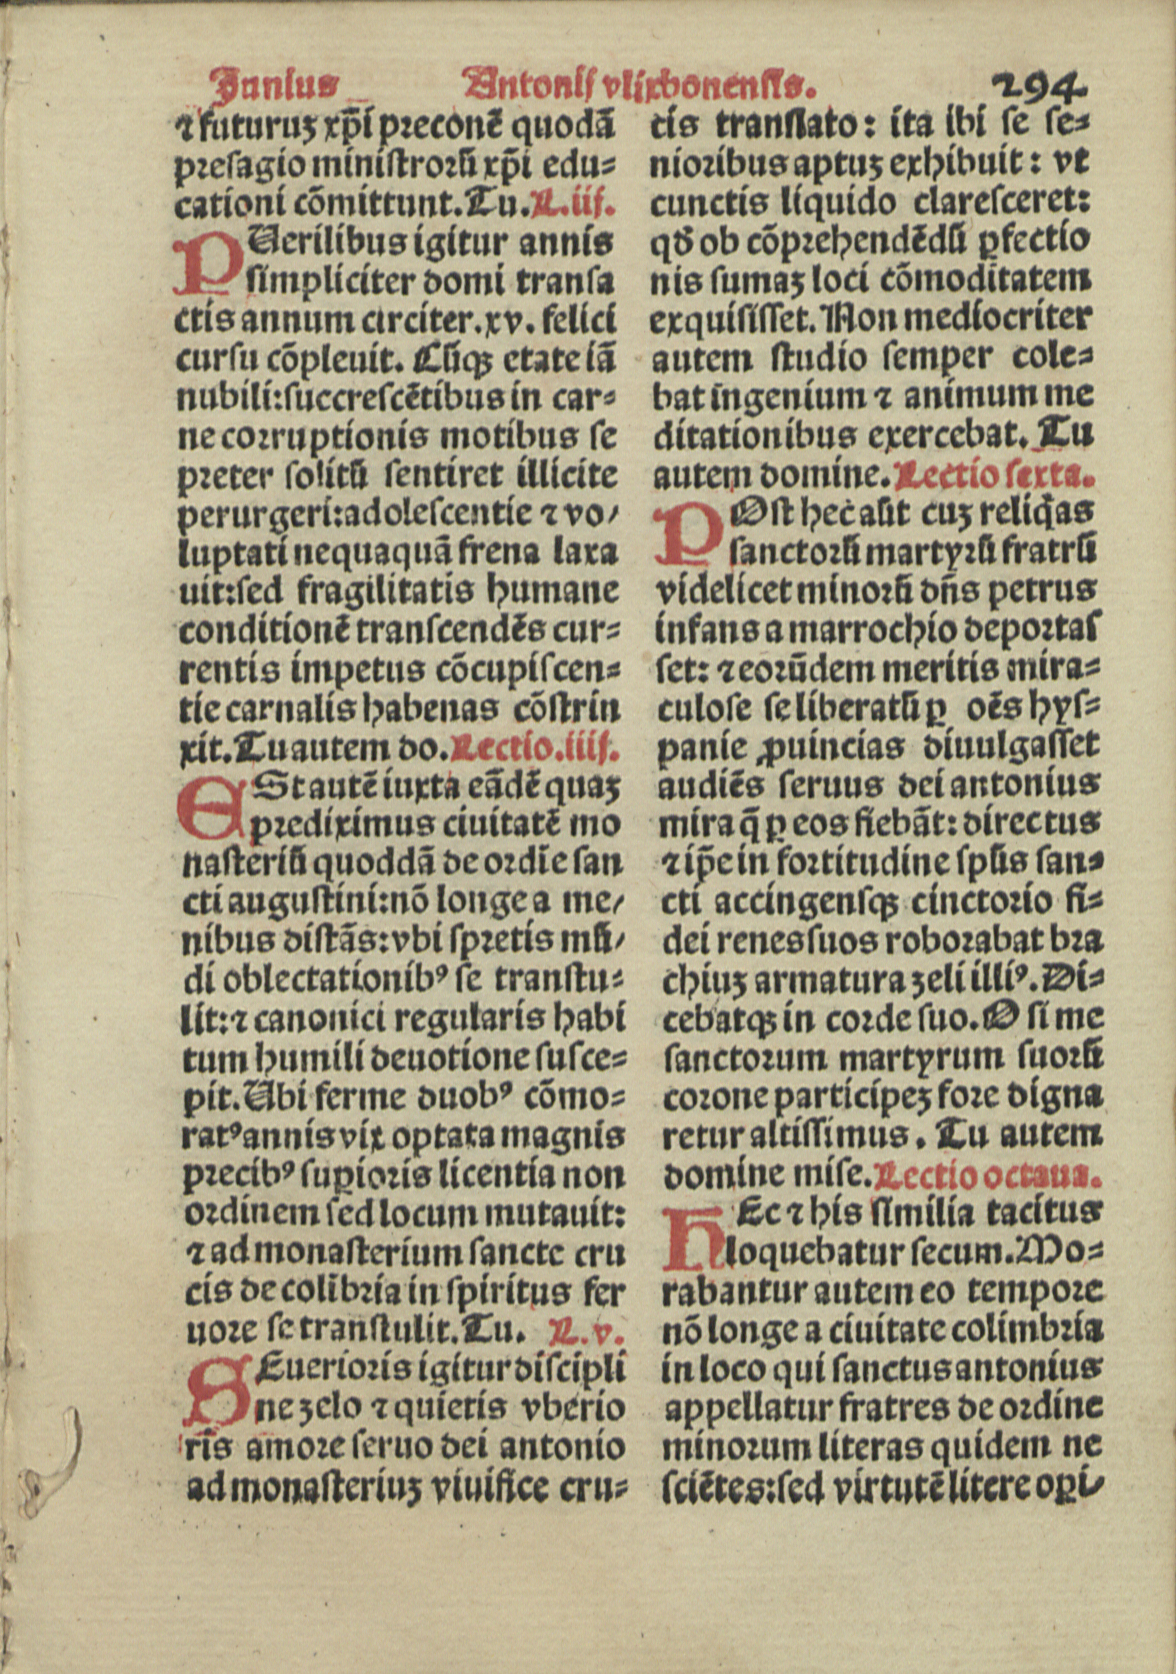 Junius Antonij vlixbonensis. 294.
⁊ futuruȝ xp̄i preconē quodā
presagio ministrorū xp̄i edu⸗
cationi cōmittunt. Tu. L. iij.
PUerilibus igitur annis
simpliciter domi transa
ctis annum circiter. xv. felici
cursu cōpleuit. Cūqꝫ etate iā
nubili: succrescētibus in car⸗
ne corruptionis motibus se
preter solitū sentiret illicite
perurgeri: adolescentie ⁊ vo/
luptati nequaquā frena laxa
uit: sed fragilitatis humane
conditionē transcendēs cur⸗
rentis impetus cōcupiscen⸗
tie carnalis habenas cōstrin
xit. Tu autem do. Lectio. iiij.
ESt autē iuxta eādē quaȝ
prediximus ciuitatē mo
nasteriū quoddā de ordīe san
cti augustini: nō longe a me/
nibus distās: vbi spretis mū/
di oblectationibꝰ se transtu⸗
lit: ⁊ canonici regularis habi
tum humili deuotione susce⸗
pit. Ubi ferme duobꝰ cōmo⸗
ratꝰ annis vix optata magnis
precibꝰ suꝑioris licentia non
ordinem sed locum mutauit:
⁊ ad monasterium sancte cru
cis de colībria in spiritus fer
uore se transtulit. Tu. L. v.
SEuerioris igitur discipli
ne zelo ⁊ quietis vberio
ris amore seruo dei antonio
ad monasteriuȝ viuifice cru⸗
cis translato: ita ibi se se⸗
nioribus aptuȝ exhibuit: vt
cunctis liquido claresceret:
qđ ob cōprehendēdū ꝑfectio
nis sumaȝ loci cōmoditatem
exquisisset. Non mediocriter
autem studio semper cole⸗
bat ingenium ⁊ animum me
ditationibus exercebat. Tu
autem domine. Lectio sexta.
POst hec aūt cuȝ reliq̄as
sanctorū martyrū fratrū
videlicet minorū dn̄s petrus
infans a marrochio deportas
set: ⁊ eorūdem meritis mira⸗
culose se liberatū ꝑ oēs hys⸗
panie ꝓuincias diuulgasset
audiēs seruus dei antonius
mira q̄ ꝑ eos fiebāt: directus
⁊ ip̄e in fortitudine spūs san⸗
cti accingensqꝫ cinctorio fi⸗
dei renes suos roborabat bra
chiuȝ armatura zeli illiꝰ. Di⸗
cebatqꝫ in corde suo. O si me
sanctorum martyrum suorū
corone participeȝ fore digna
retur altissimus. Tu autem
domine mise. Lectio octaua.
HEc ⁊ his similia tacitus
loquebatur secum. Mo⸗
rabantur autem eo tempore
nō longe a ciuitate colimbria
in loco qui sanctus antonius
appellatur fratres de ordine
minorum literas quidem ne
sciētes: sed virtutē litere oꝑi/